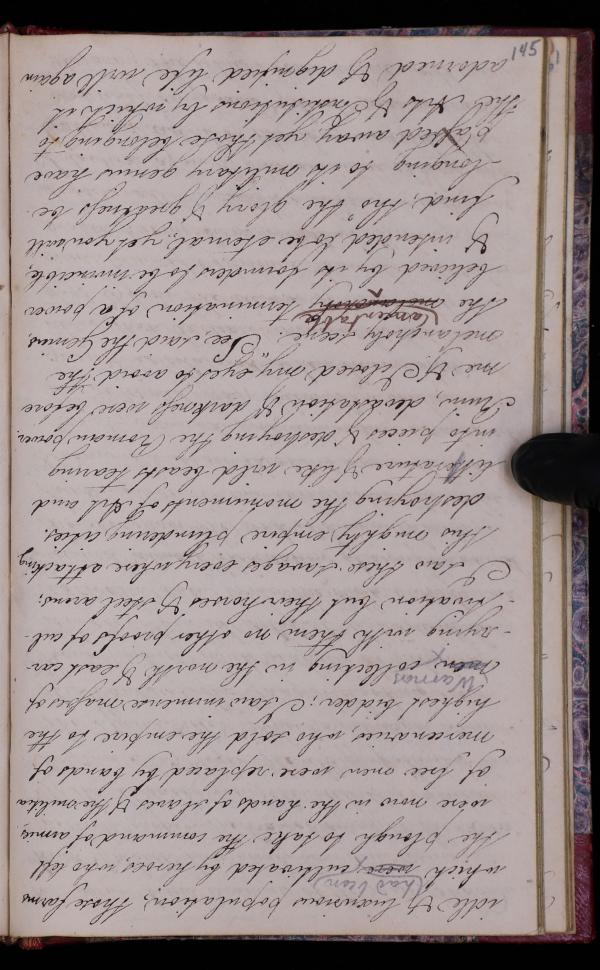 idle & luxurious population, those farms
(had been
which were cultivated by heroes, who left
the plough to take the command of armies,
were now in the hands of slaves & the militia
of free men were replaced by bands of
mercenaries, who sold the empire to the
highest bidder. I saw immense masses of
Warriors
men collecting in the north & east car-
-rying with them no other proofs of cul-
-tivation but their horses & steel arms;
I saw these savages everywhere attacking
this mighty empire plundering cities,
destroying the monuments of Art and
literature & like wild beasts tearing
into pieces & destroying the Roman power.
Ruin, desolation & darkness were before
me & I closed my eyes to avoid the
melancholy scene. "See" said the Genius,
(lamentable
the melancholy termination of a power
believed by its founders to be invincible,
& intended to be eternal; yet you will
find, tho' the glory & greatness be-
longing to its military genius have
passed away, yet those belonging to
the Arts & Institutions by which it
adorned & dignified life will again
145